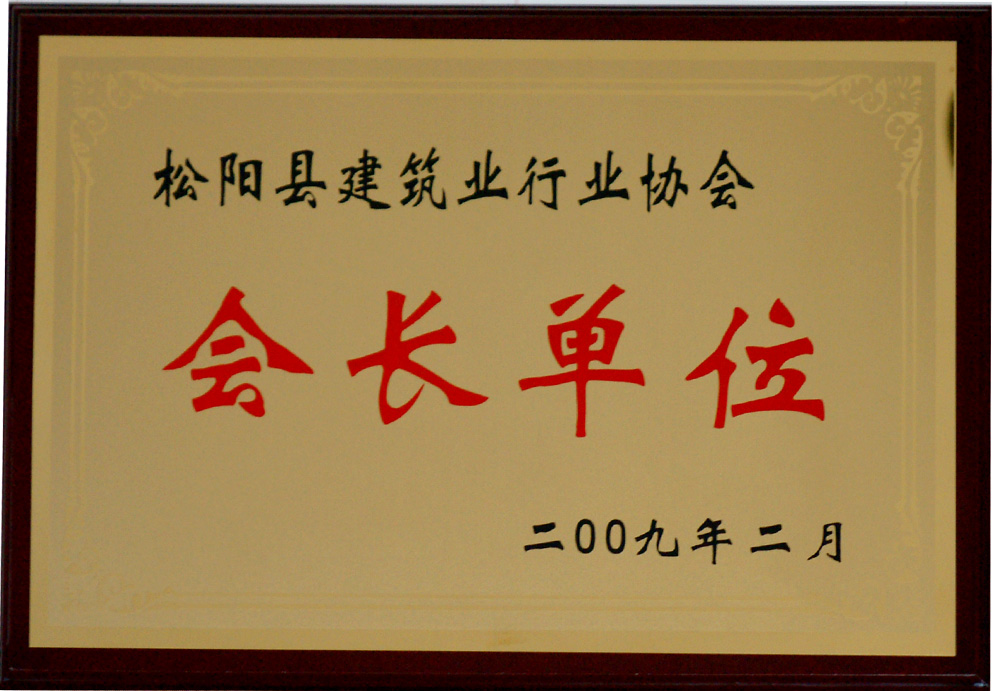 松阳县建筑业行业协会
会长单位
二00九年二月